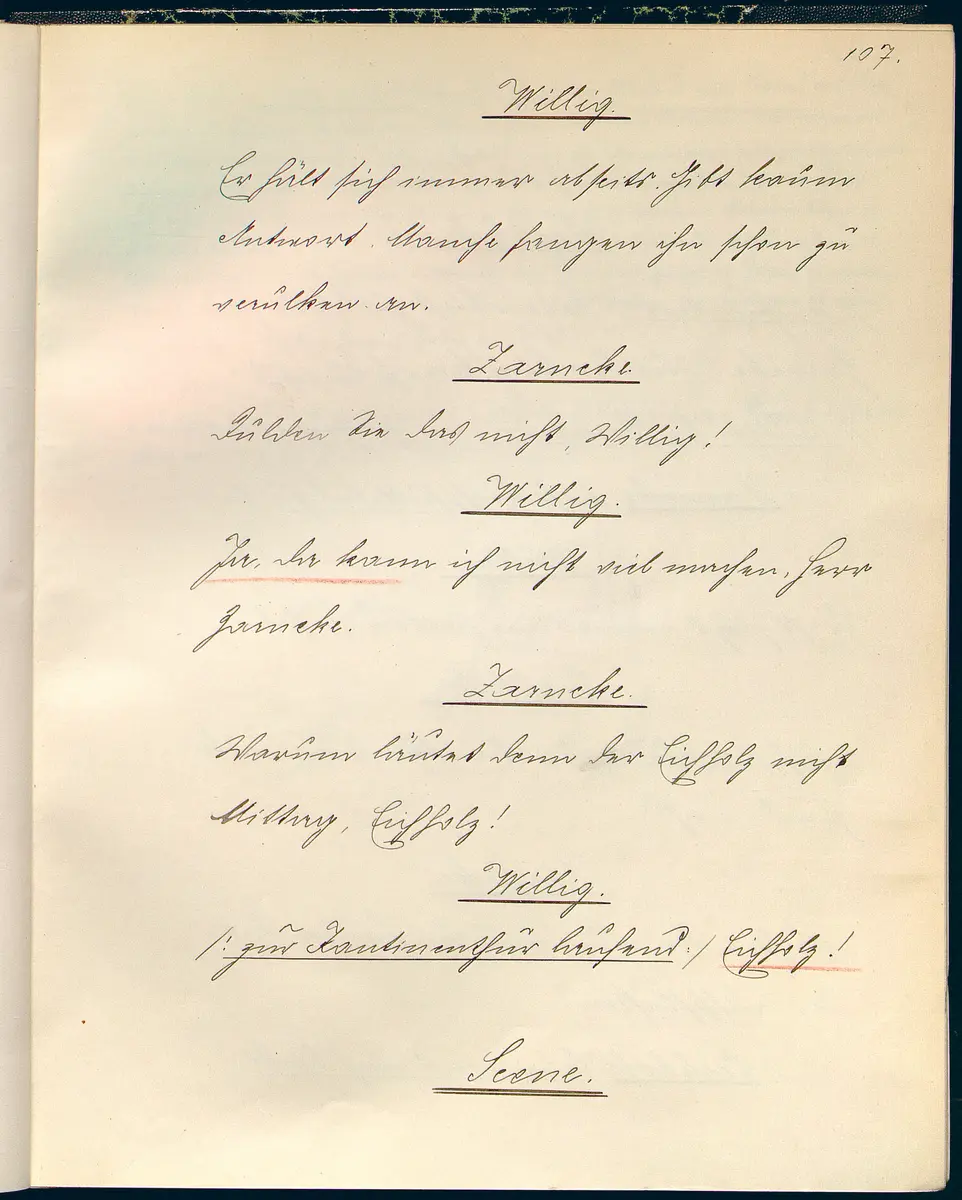 107.
Willig.
Er hält sich immer abseits. Gibt kaum
Antwort. Manche fangen ihn schon zu
verulken an.
Zarncke.
Dulden Sie das nicht, Willig!
Willig.
Ja, da kann ich nicht viel machen, Herr
Zarncke.
Zarncke.
Warum läutet denn der Eichholz nicht
Mittag, Eichholz!
Willig.
/: zur Kantinenthür laufend :/ Eichholz!
Scene.